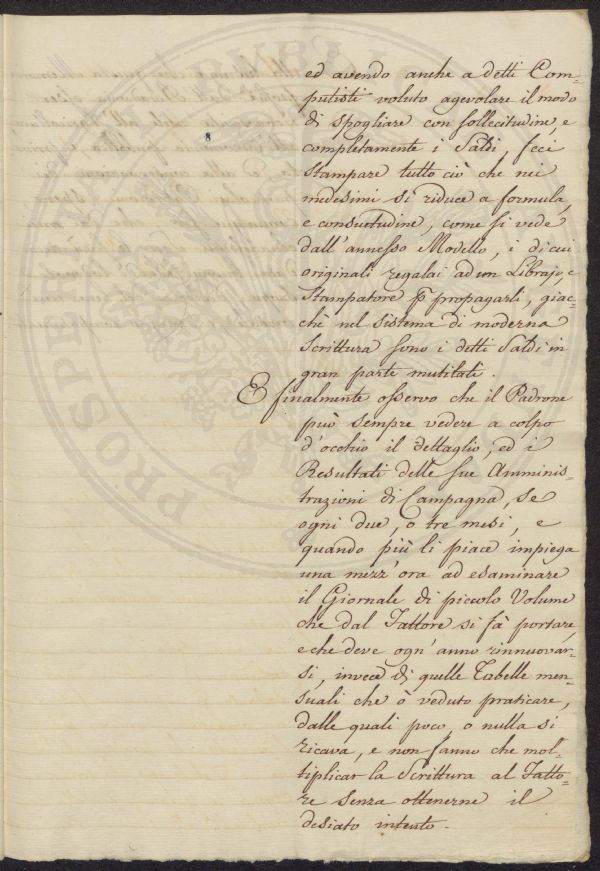 ed avendo anche a detti Com-
putisti voluto agevolare il modo
di spogliare con sollecitudine, e
completamente i Saldi, feci
stampare tutto ciò che nei
medesimi si riduce a formula,
e consuetudine, come si vede
dall'annesso Modello, i di cui
originali regalai ad un Librajo, e
Stampatore p propagarli, giac-
chè nel sistema di moderna
Scrittura sono i detti Saldi in
gran parte mutilati.
E finalmente osservo che il Padrone
può sempre vedere a colpo
d'occhio il dettaglio, ed i
Resultati delle sue Amminis-
trazioni di Campagna, se
ogni due, o tre mesi, e
quando più li piace impiega
una mezz'ora ad esaminare
il Giornale di piccolo Volume
che dal Fattore si fà portare,
e che deve ogn'anno rinnuovar-
si, invece di quelle Tabelle men-
suali che ò veduto praticare,
dalle quali poco, o nulla si
ricava, e non fanno che mol-
tiplicar la Scrittura al Fatto-
re senza ottenerne il
desiato intento.
8
PROSPER